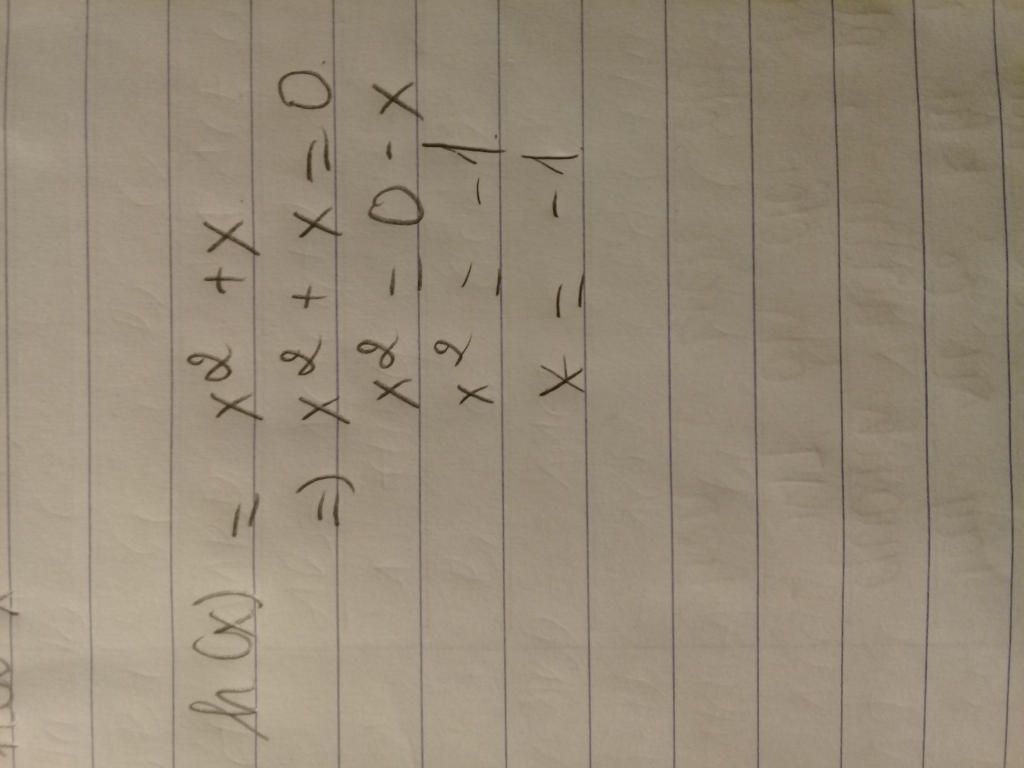 h(x) = x² + x
=) x² + x = 0
x² = 0 - x
x² = -1
x = -1